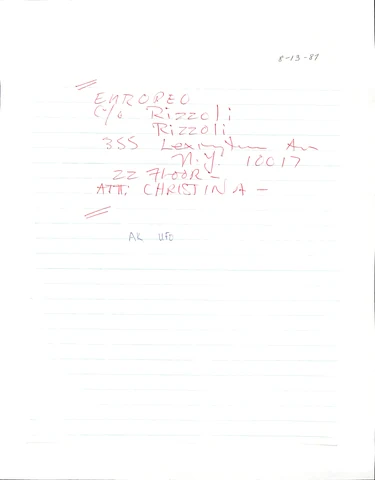 8-13-87
EUROPEO
C/o Rizzoli
Rizzoli
355 Lexington Av
N.Y. 10017
22 FLOOR -
ATT: CHRISTINA -
AK UFO